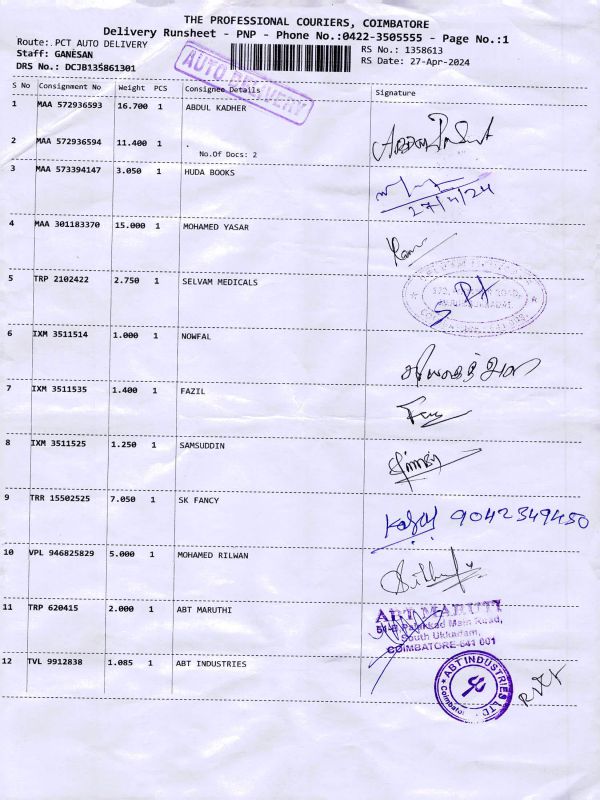 THE PROFESSIONAL COURIERS, COIMBATORE
Delivery Runsheet - PNP - Phone No.:0422-3505555 - Page No.:1
Route: PCT AUTO DELIVERY
RS No.: 1358613
Staff: GANESAN
RS Date: 27-Apr-2024
DRS No.: DCJB135861301
AUTO DELIVERY
S No Consignment No Weight PCS Consignee Details Signature
1 MAA 572936593 16.700 1 ABDUL KADHER
2 MAA 572936594 11.400 1 .
No.Of Docs: 2
3 MAA 573394147 3.050 1 HUDA BOOKS
27/4/24
4 MAA 301183370 15.000 1 MOHAMED YASAR
5 TRP 2102422 2.750 1 SELVAM MEDICALS
6 IXM 3511514 1.000 1 NOWFAL
7 IXM 3511535 1.400 1 FAZIL
8 IXM 3511525 1.250 1 SAMSUDDIN
9 TRR 15502525 7.050 1 SK FANCY
9042349450
10 VPL 946825829 5.000 1 MOHAMED RILWAN
11 TRP 620415 2.000 1 ABT MARUTHI
ABT MARUTI
Palakkad Main Road,
South Ukkadam,
COIMBATORE-641 001
12 TVL 9912838 1.085 1 ABT INDUSTRIES
ABT INDUSTRIES LTD.
Coimbatore